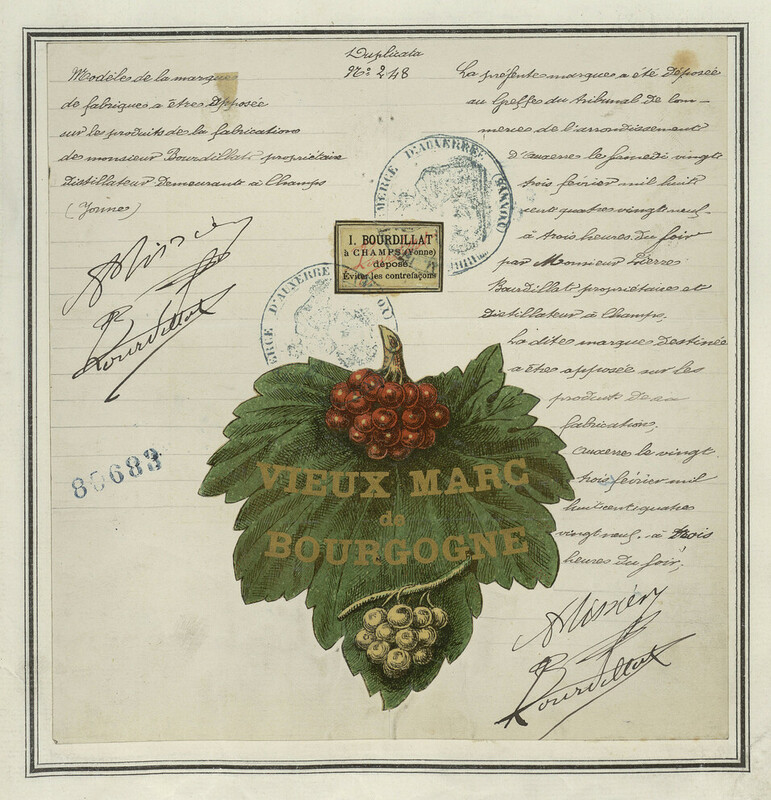 Duplicata
No: 248
Modèle de la marque
de fabrique a être déposée
sur le produits de la fabrications
de monsieur Bourdillat propriétaire
Distillateur Demeurant à Champs
(Yonne)
Bourdillat
80683
MERCE D'AUXERRE (YONNE)
I. BOURDILLAT
à CHAMPS (Yonne)
déposé
Éviter les contrefaçons
MERCE D'AUXERRE
VIEUX MARC
de
BOURGOGNE
La présente marque a été déposée
au Greffe du tribunal de Com-
merces de l'arrondissement
D'auxerre le samedi vingt
trois février mil huit
cent quatre vingt neuf
à trois heures du soir
par Monsieur Pierre
Bourdillat propriétaire et
Distillateur à Champs.
La dite marque Destinée
a être apposée sur les
produits de sa
fabrication,
auxerre le vingt
trois février mil
huit cent quatre
vingt neuf. à trois
heures du soir,
Bourdillat